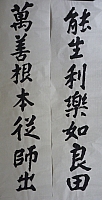 能生利樂如良田
萬善根本從師出